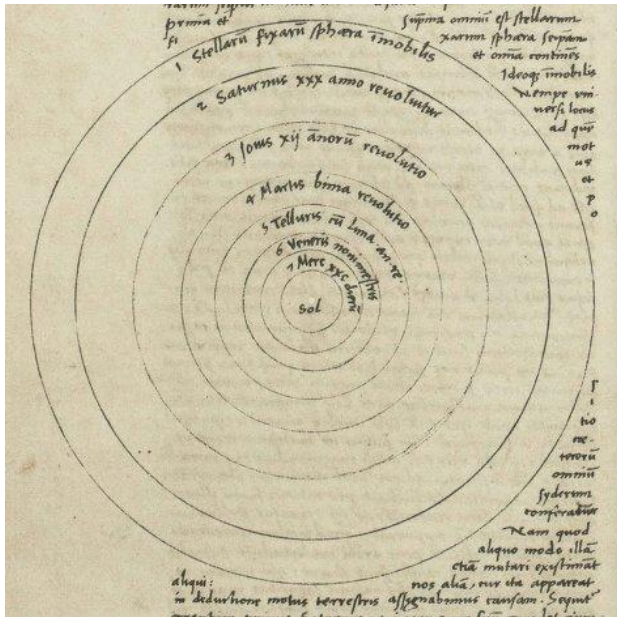 prima et Supma omniu est stellarum
fi xarum sphæra seipam
et omia continens
Ideoqz imobilis
Nempe vni
versi locus
ad que
mot
us
et
p
o
1 Stellarū fixarū sphæra īmobilis
2 Saturnus xxx anno reuoluitur
3 Jouis xij ānorū reuolutio
4 Martis bima reuolutio
5 Telluris cū Luna an. re.
6 Veneris nonimestris
7 Merc xxc dierū
Sol
s
i
tio
cæ-
terorū
omniū
syderum
conferatur
Nam quod
aliquo modo illā
etiā mutari existimāt
aliqui: nos aliā, cur ita appareat
in deductione motus terrestris assignabimus causam. Sequit